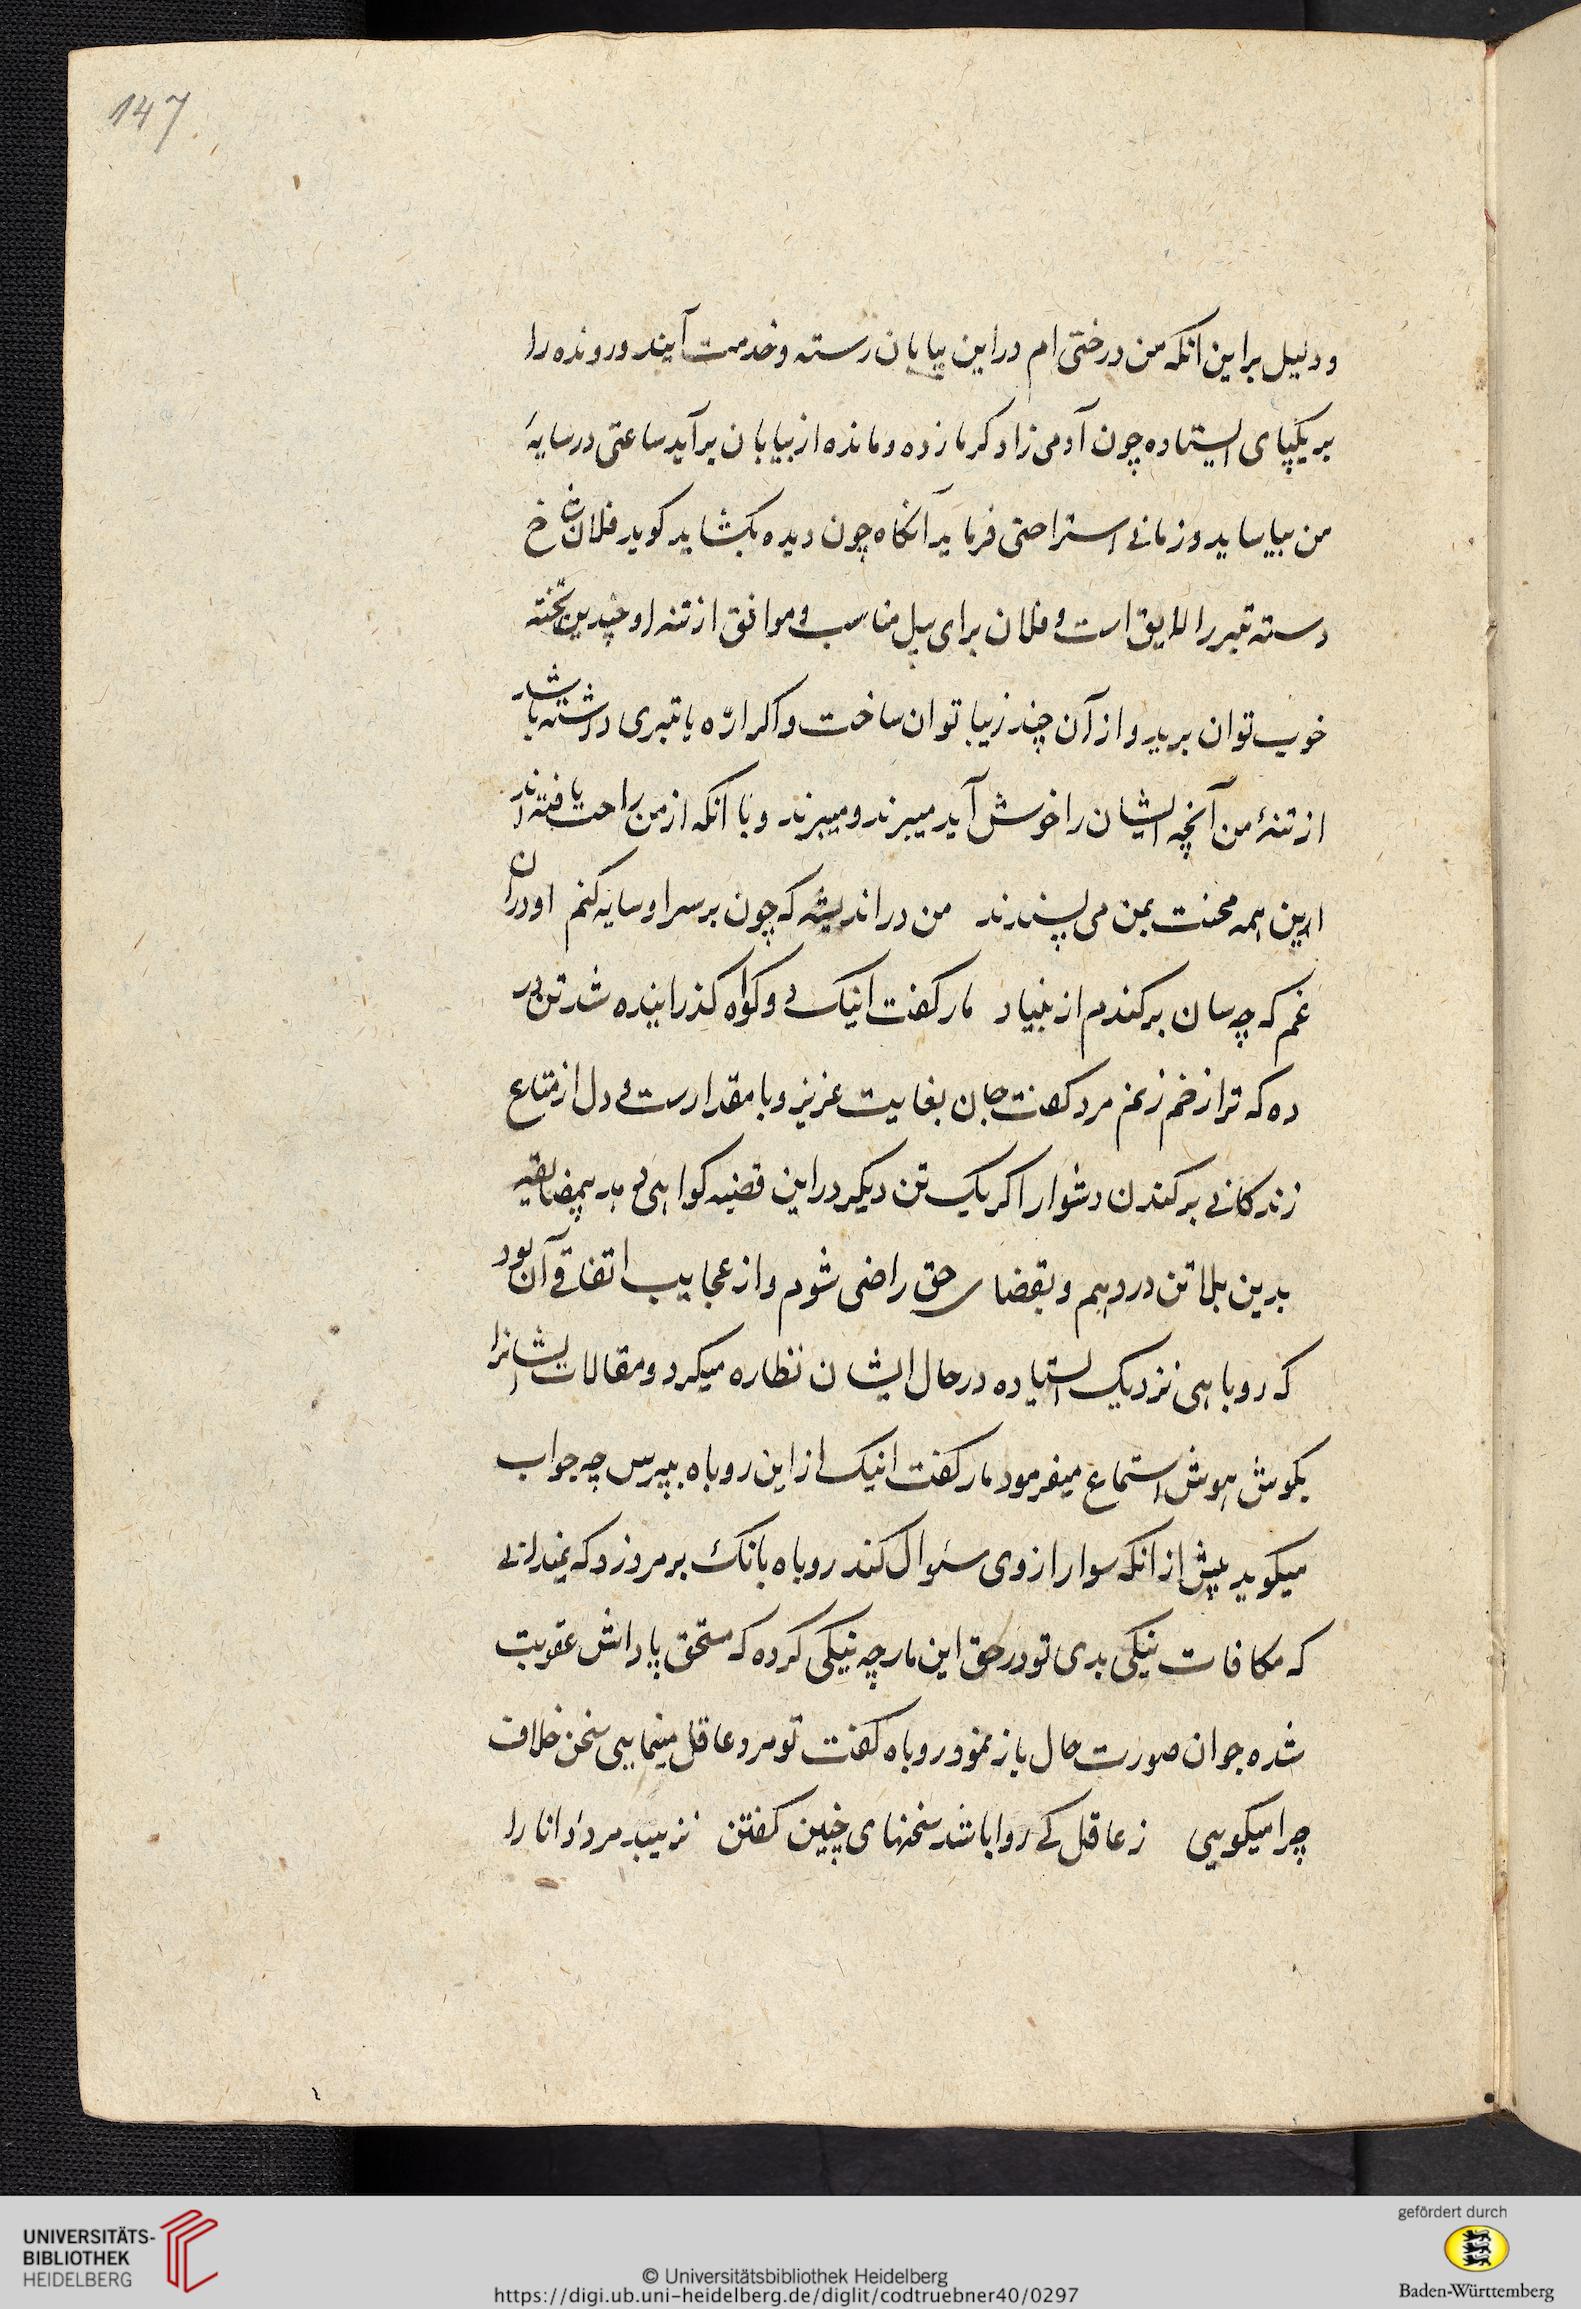 147
و دلیل براین انکه من درختی ام دراین بیابان رسته و خدمت آینده و رونده را
بریکپای ایستاده چون آدمی زاد کرمازده و مانده از بیابان برآید ساعتی در سایهٔ
من بیاساید و زمانی استراحتی فرماید آنکاه چون دیده بکشاید کوید فلان شاخ
دسته تبر را لایق است و فلان برای بیل مناسب و موافق از تنه او چندین تخته
خوب توان برید و از آن چند زیبا توان ساخت و اکر ارّه یا تبری داشته باشد
از تنهٔ من آنچه ایشان را خوش آید میبرند و میبرند و با انکه از من راحت یافته اند
این همه محنت بمن می پسندند من در اندیشه که چون بر سر او سایه کنم او دران
غم که چه سان برکندم از بنیاد مار کفت اینک دو کواه کذرانیده شد تن در
ده که ترا زخم زنم مرد کفت جان بغایت عزیز و با مقدارست و دل از متاع
زندکانی برکندن دشوار اکر یک تن دیکر در این قضیه کواهی دهد بیمضایقه
بدین بلا تن دردهم و بقضای حق راضی شوم و از عجایب اتفاق آن بود
که روباهی نزدیک ایستاده در حال ایشان نظاره میکرد و مقالات ایشانرا
بکوش هوش استماع میفرمود مار کفت اینک از این روباه بپرس چه جواب
میکوید پیش از انکه سوار از وی سئوال کند روباه بانک بر مرد زد که نمیدانی
که مکافات نیکی بدی تو در حق این مار چه نیکی کرده که مستحق پاداش عقوبت
شده جوان صورت حال باز نمود روباه کفت تو مرد عاقل مینمایی سخن خلاف
چرا میکویی ز عاقل کی روا باشد سخنهای چنین کفتن نزیبد مرد دانا را
UNIVERSITÄTS-
BIBLIOTHEK
HEIDELBERG
© Universitätsbibliothek Heidelberg
https://digi.ub.uni-heidelberg.de/diglit/codtruebner40/0297
gefördert durch
Baden-Württemberg